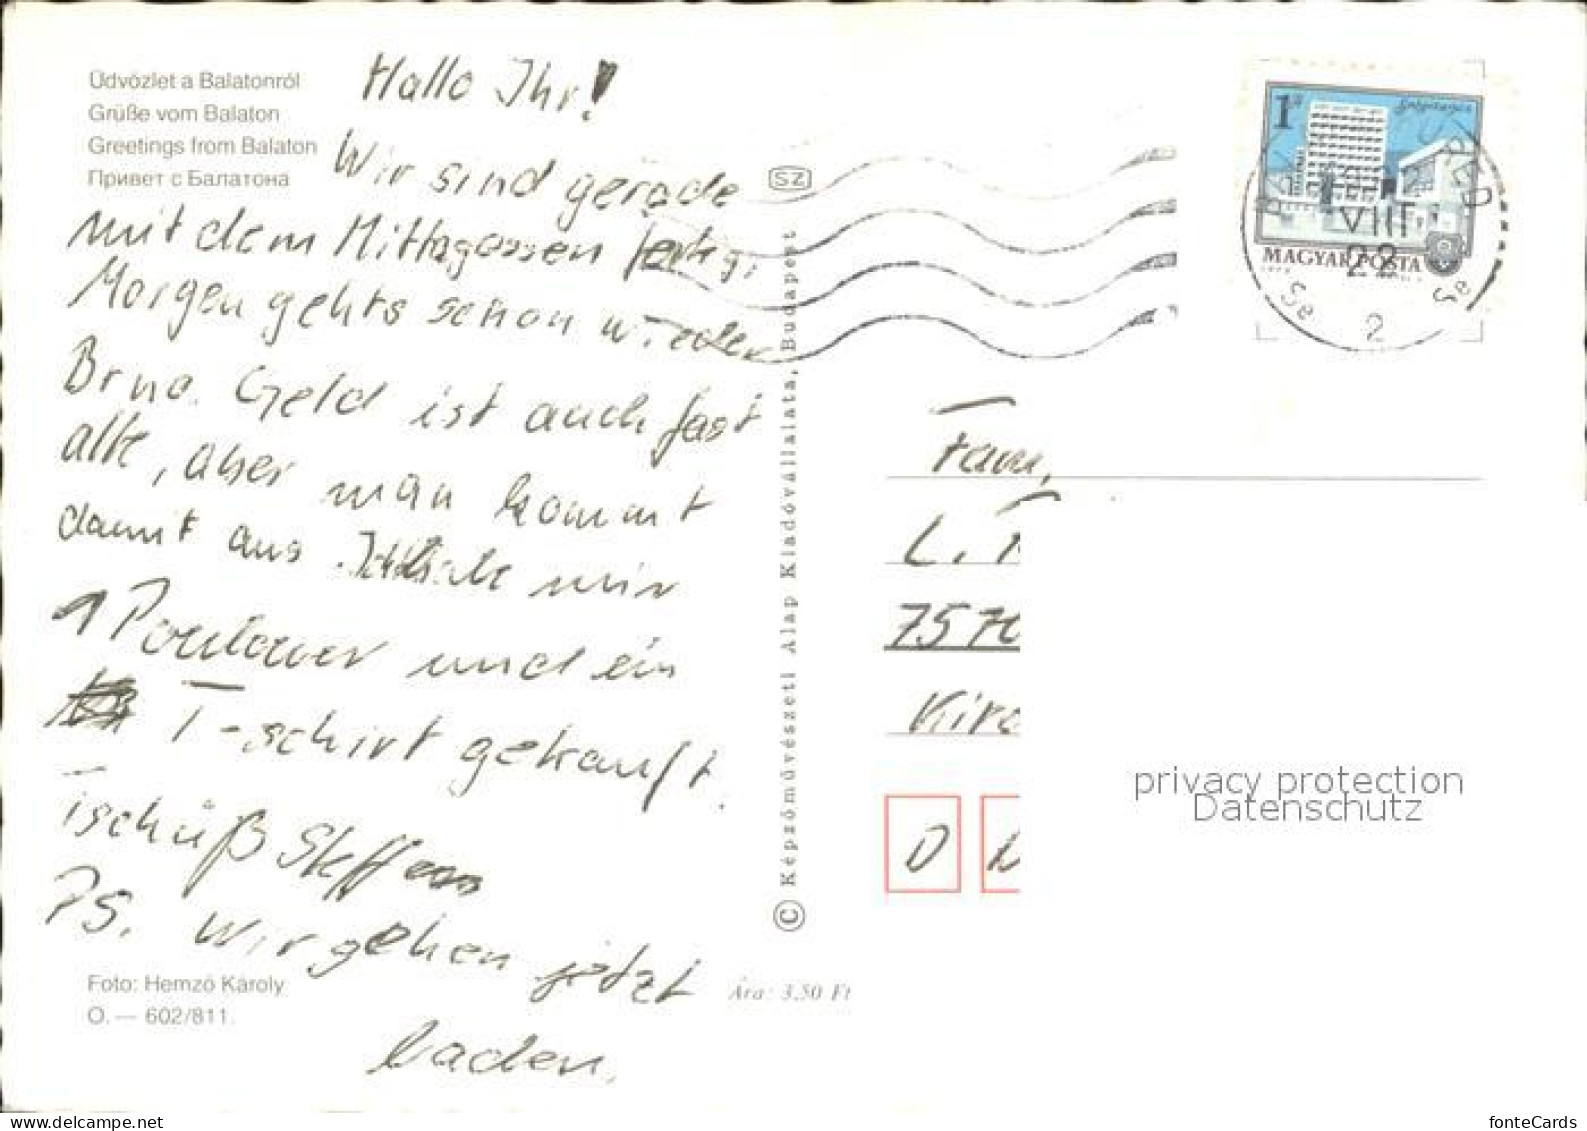 Üdvözlet a Balatonról
Grüße vom Balaton
Greetings from Balaton
Привет с Балатона
Hallo Ihr!
Wir sind gerade
mit dem Mittagessen fertig.
Morgen gehts schon wieder
Brno. Geld ist auch fast
alle, aber man kommt
damit aus. mir
1 Poulover und ein
T-schirt gekauft.
Tschüß Steffen
PS. Wir gehen jetzt
baden.
Foto: Hemző Károly
O.— 602/811.
Ára: 3,50 Ft
© Képzőművészeti Alap Kiadóvállalata, Budapest
SZ
1
MAGYAR POSTA
VIII
22
2
Fam.
L.
7570
D
privacy protection
Datenschutz
www.delcampe.net
fonteCards